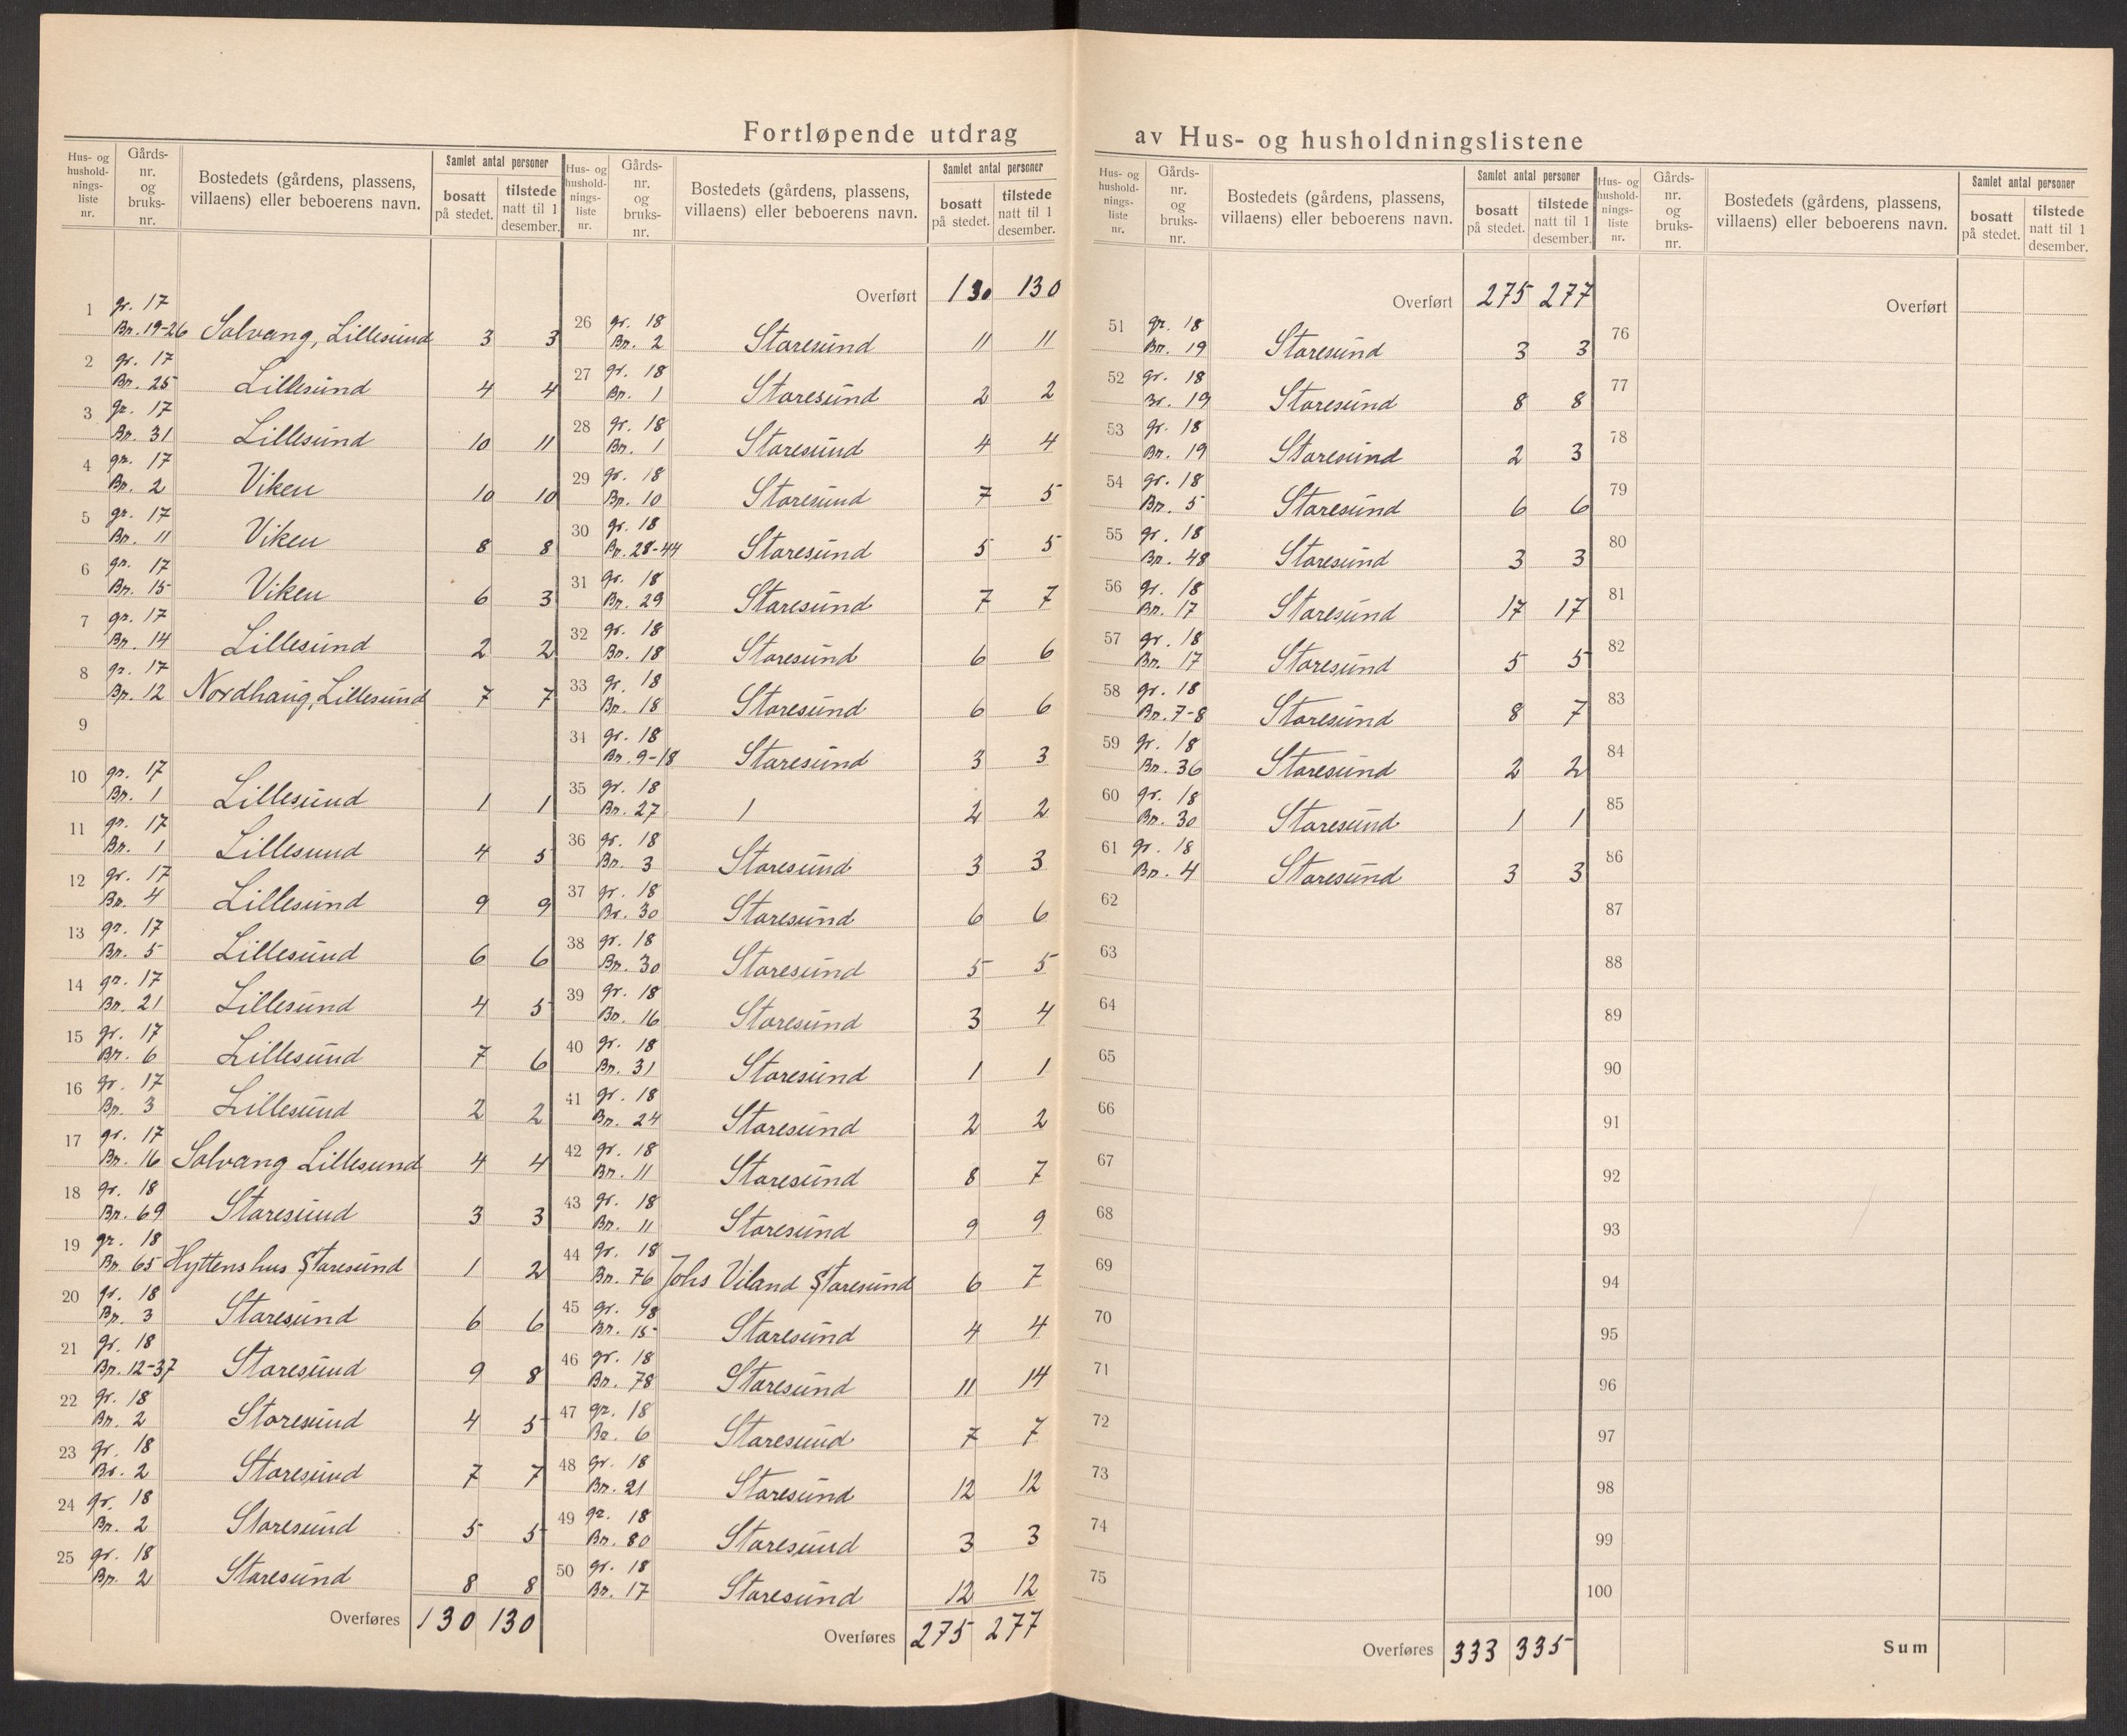 Fortløpende utdrag av Hus- og husholdningslistene
Hus- og hushold- nings- liste nr. | Gårds- nr. og bruks- nr. | Bostedets (gårdens, plassens, villaens) eller beboerens navn. | Samlet antal personer | bosatt på stedet. | tilstede natt til 1 desember.
1 | gr. 17 Bn. 19-26 | Solvang, Lillesund | 3 | 3
2 | gr. 17 Bn. 25 | Lillesund | 4 | 4
3 | gr. 17 Bn. 31 | Lillesund | 10 | 11
4 | gn. 17 Bn. 2 | Viken | 10 | 10
5 | gn. 17 Bn. 11 | Viken | 8 | 8
6 | gn. 17 Bn. 15 | Viken | 6 | 3
7 | gn. 17 Bn. 14 | Lillesund | 2 | 2
8 | gn. 17 Bn. 12 | Nordhaug, Lillesund | 7 | 7
9
10 | gn. 17 Bn. 1 | Lillesund | 1 | 1
11 | gn. 17 Bn. 1 | Lillesund | 4 | 5
12 | gr. 17 Bn. 4 | Lillesund | 9 | 9
13 | gn. 17 Bn. 5 | Lillesund | 6 | 6
14 | gn. 17 Bn. 21 | Lillesund | 4 | 5
15 | gr. 17 Bn. 6 | Lillesund | 7 | 6
16 | gr. 17 Bn. 3 | Lillesund | 2 | 2
17 | gr. 17 Bn. 16 | Solvang Lillesund | 4 | 4
18 | gr. 18 Bn. 69 | Storesund | 3 | 3
19 | gr. 18 Bn. 65 | Hyttenshus Storesund | 1 | 2
20 | gr. 18 Bn. 3 | Storesund | 6 | 6
21 | gr. 18 Bn. 12-37 | Storesund | 9 | 8
22 | gr. 18 Bn. 2 | Storesund | 4 | 5
23 | gr. 18 Bn. 2 | Storesund | 7 | 7
24 | gr. 18 Bn. 2 | Storesund | 5 | 5
25 | gr. 18 Bn. 2 | Storesund | 8 | 8
Overføres 130 130
Hus- og hushold- nings- liste nr. | Gårds- nr. og bruks- nr. | Bostedets (gårdens, plassens, villaens) eller beboerens navn. | Samlet antal personer | bosatt på stedet. | tilstede natt til 1 desember.
Overført 130 130
26 | gr. 18 Bn. 2 | Storesund | 11 | 11
27 | gr. 18 Bn. 1 | Storesund | 2 | 2
28 | gr. 18 Bn. 1 | Storesund | 4 | 4
29 | gr. 18 Bn. 10 | Storesund | 7 | 5
30 | gr. 18 Bn. 28-44 | Storesund | 5 | 5
31 | gr. 18 Bn. 29 | Storesund | 7 | 7
32 | gr. 18 Bn. 18 | Storesund | 6 | 6
33 | gr. 18 Bn. 18 | Storesund | 6 | 6
34 | gr. 18 Bn. 9-18 | Storesund | 3 | 3
35 | gr. 18 Bn. 27 | 1 | 2 | 2
36 | gr. 18 Bn. 3 | Storesund | 3 | 3
37 | gr. 18 Bn. 30 | Storesund | 6 | 6
38 | gr. 18 Bn. 30 | Storesund | 5 | 5
39 | gr. 18 Bn. 16 | Storesund | 3 | 4
40 | gr. 18 Bn. 31 | Storesund | 1 | 1
41 | gr. 18 Bn. 24 | Storesund | 2 | 2
42 | gr. 18 Bn. 11 | Storesund | 8 | 7
43 | gr. 18 Bn. 11 | Storesund | 9 | 9
44 | gr. 18 Bn. 76 | Johs Viland Storesund | 6 | 7
45 | gr. 18 Bn. 15 | Storesund | 4 | 4
46 | gr. 18 Bn. 78 | Storesund | 11 | 14
47 | gr. 18 Bn. 6 | Storesund | 7 | 7
48 | gr. 18 Bn. 21 | Storesund | 12 | 12
49 | gr. 18 Bn. 80 | Storesund | 3 | 3
50 | gr. 18 Bn. 17 | Storesund | 12 | 12
Overføres 275 277
Hus- og hushold- nings- liste nr. | Gårds- nr. og bruks- nr. | Bostedets (gårdens, plassens, villaens) eller beboerens navn. | Samlet antal personer | bosatt på stedet. | tilstede natt til 1 desember.
Overført 275 277
51 | gr. 18 Bn. 19 | Storesund | 3 | 3
52 | gr. 18 Bn. 19 | Storesund | 8 | 8
53 | gr. 18 Bn. 19 | Storesund | 2 | 3
54 | gr. 18 Bn. 5 | Storesund | 6 | 6
55 | gr. 18 Bn. 48 | Storesund | 3 | 3
56 | gr. 18 Bn. 17 | Storesund | 17 | 17
57 | gr. 18 Bn. 17 | Storesund | 5 | 5
58 | gr. 18 Bn. 7-8 | Storesund | 8 | 7
59 | gr. 18 Bn. 36 | Storesund | 2 | 2
60 | gr. 18 Bn. 30 | Storesund | 1 | 1
61 | gr. 18 Bn. 4 | Storesund | 3 | 3
62
63
64
65
66
67
68
69
70
71
72
73
74
75
Overføres 333 335
Hus- og hushold- nings- liste nr. | Gårds- nr. og bruks- nr. | Bostedets (gårdens, plassens, villaens) eller beboerens navn. | Samlet antal personer | bosatt på stedet. | tilstede natt til 1 desember.
Overført
76
77
78
79
80
81
82
83
84
85
86
87
88
89
90
91
92
93
94
95
96
97
98
99
100
Sum